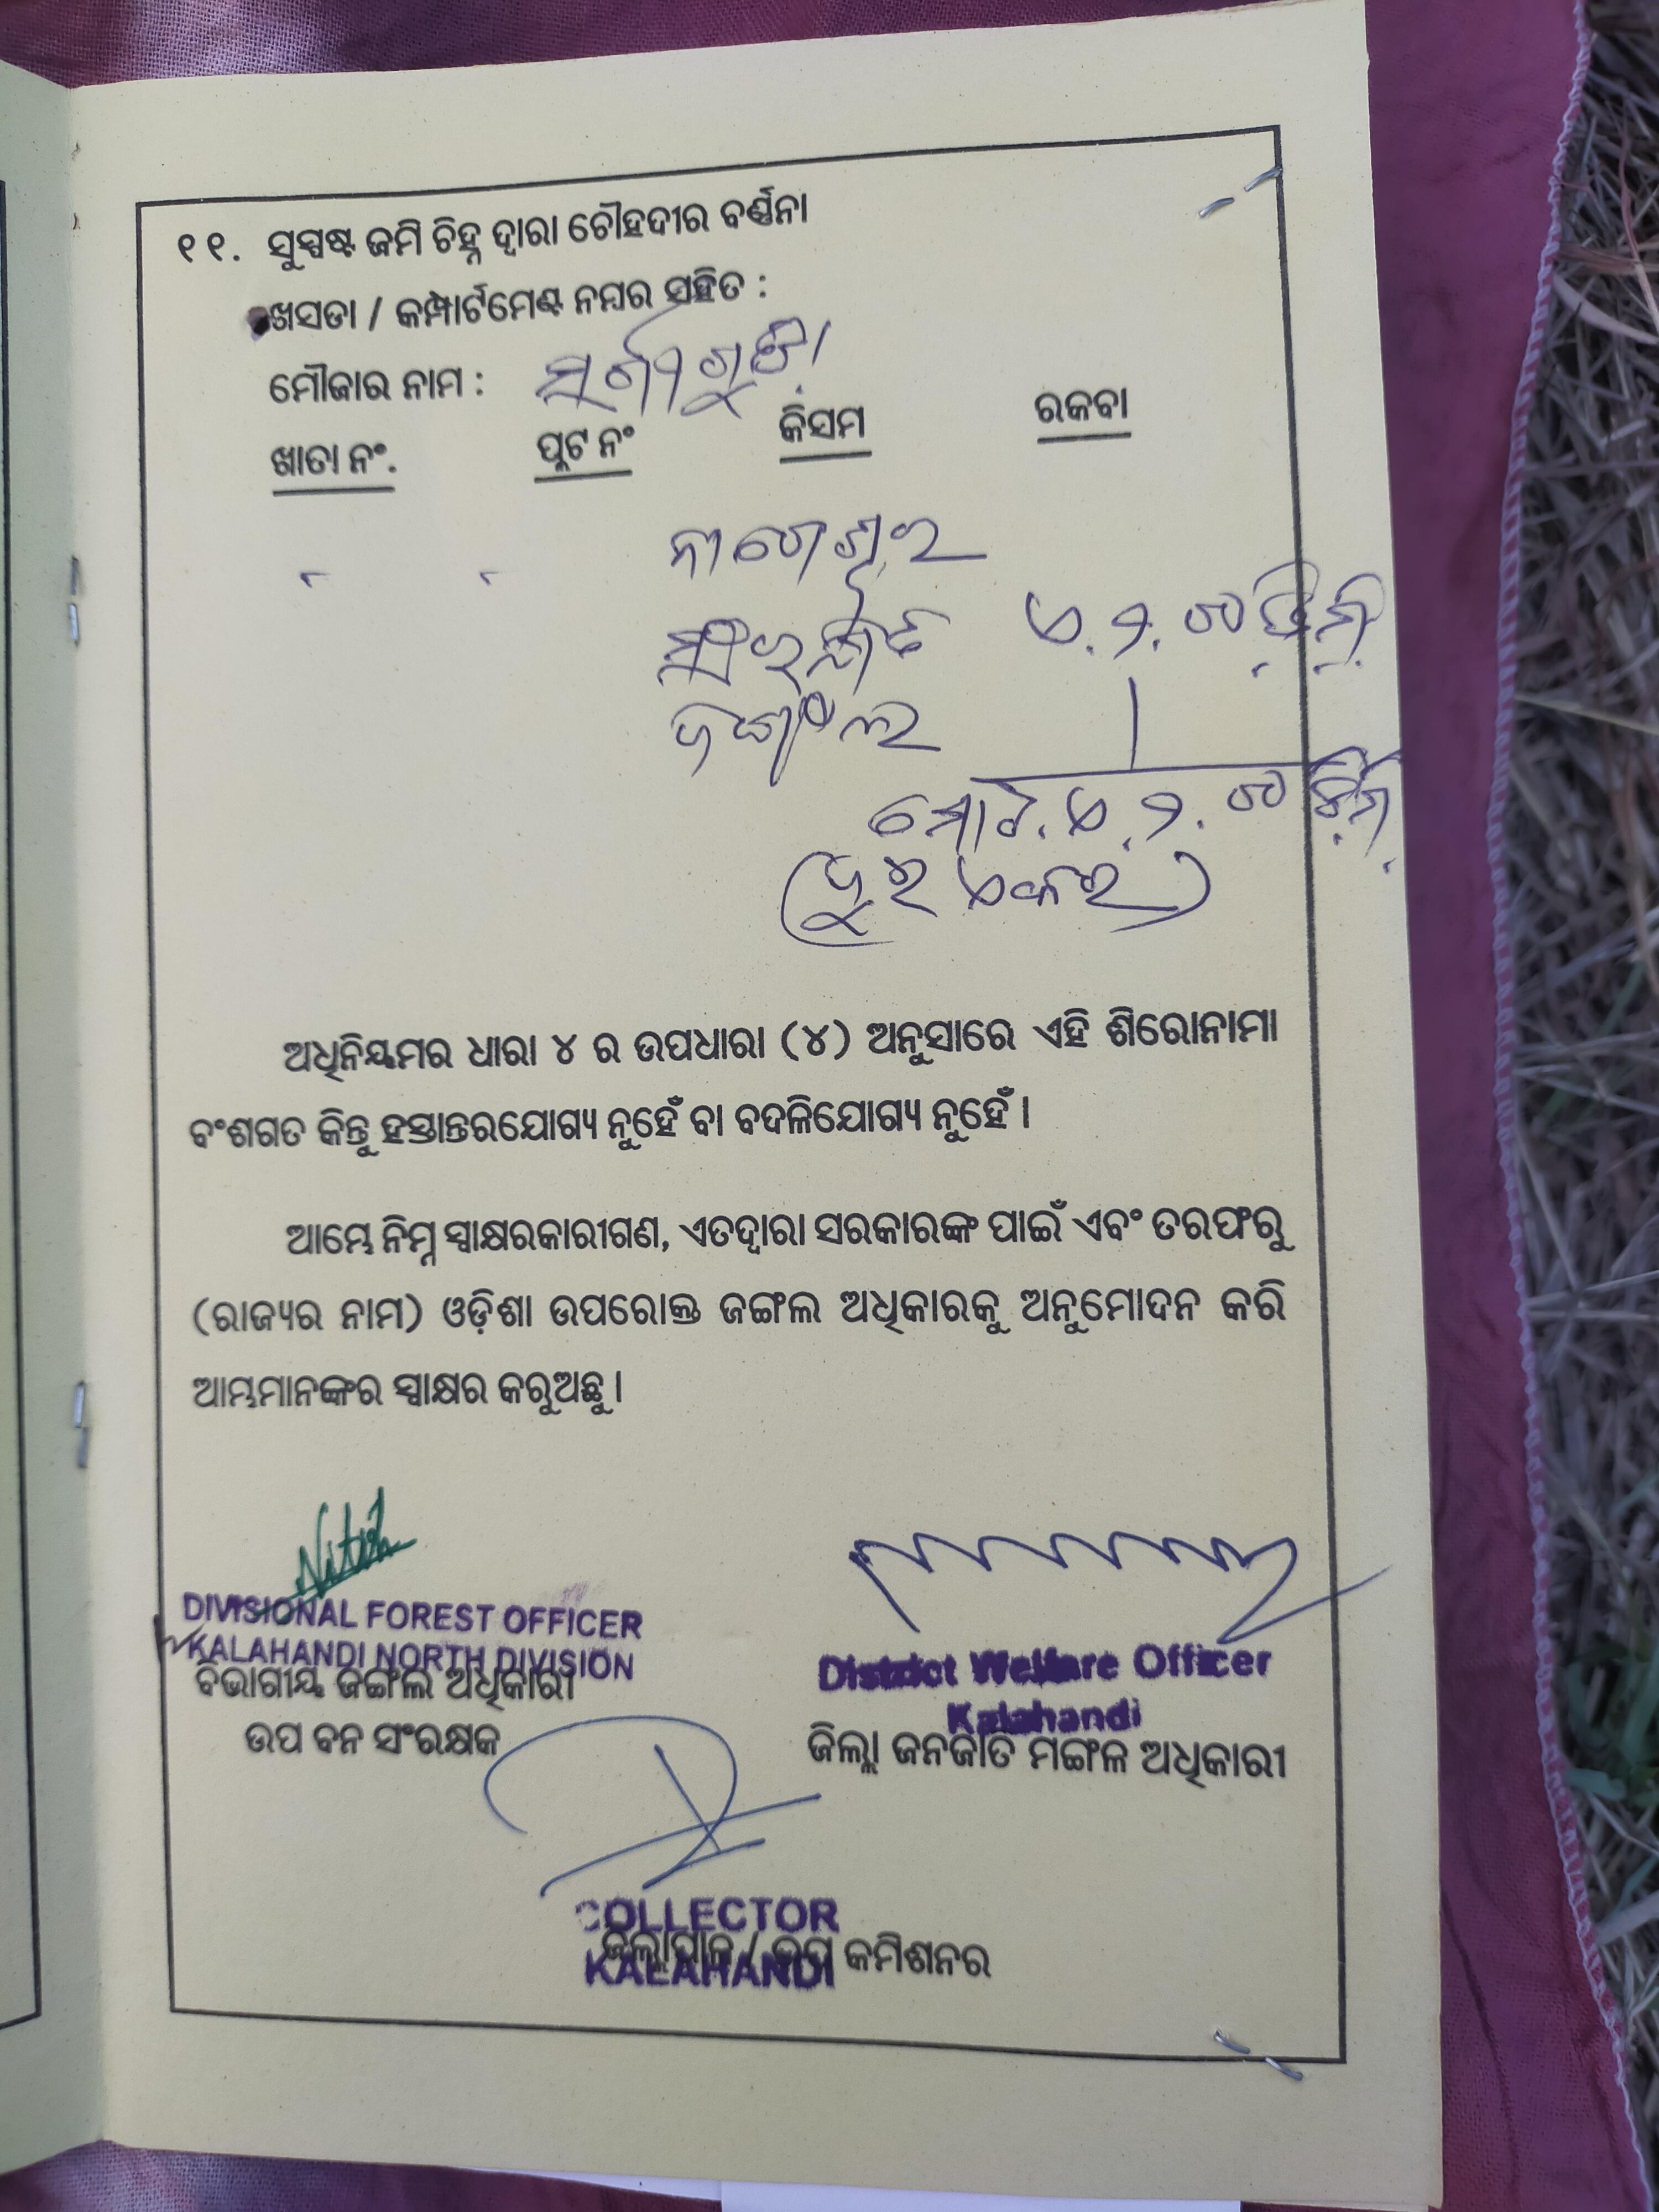 ୧୧. ସୁସ୍ପଷ୍ଟ ଜମି ଚିହ୍ନ ଦ୍ୱାରା ଚୌହଦୀର ବର୍ଣ୍ଣନା
ଖସଡା / କମ୍ପାର୍ଟମେଣ୍ଟ ନମ୍ବର ସହିତ :
ମୌଜାର ନାମ :
ଖାତା ନଂ. ପ୍ଲଟ ନଂ କିସମ ରକବା
ଏ. ୨. ୦୦
ମୋଟ. ଏ. ୨. ୦୦
(ଦୁଇ ଏକର)
ଅଧିନିୟମର ଧାରା ୪ ର ଉପଧାରା (୪) ଅନୁସାରେ ଏହି ଶିରୋନାମା
ବଂଶଗତ କିନ୍ତୁ ହସ୍ତାନ୍ତରଯୋଗ୍ୟ ନୁହେଁ ବା ବଦଳିଯୋଗ୍ୟ ନୁହେଁ ।
ଆମ୍ଭେ ନିମ୍ନ ସ୍ୱାକ୍ଷରକାରୀଗଣ, ଏତଦ୍ୱାରା ସରକାରଙ୍କ ପାଇଁ ଏବଂ ତରଫରୁ
(ରାଜ୍ୟର ନାମ) ଓଡ଼ିଶା ଉପରୋକ୍ତ ଜଙ୍ଗଲ ଅଧିକାରକୁ ଅନୁମୋଦନ କରି
ଆମ୍ଭମାନଙ୍କର ସ୍ୱାକ୍ଷର କରୁଅଛୁ ।
Nitish
DIVISIONAL FOREST OFFICER
KALAHANDI NORTH DIVISION
ବିଭାଗୀୟ ଜଙ୍ଗଲ ଅଧିକାରୀ
ଉପ ବନ ସଂରକ୍ଷକ
District Welfare Officer
Kalahandi
ଜିଲ୍ଲା ଜନଜାତି ମଙ୍ଗଳ ଅଧିକାରୀ
COLLECTOR
ଜିଲ୍ଲାପାଳ / ଉପ କମିଶନର
KALAHANDI